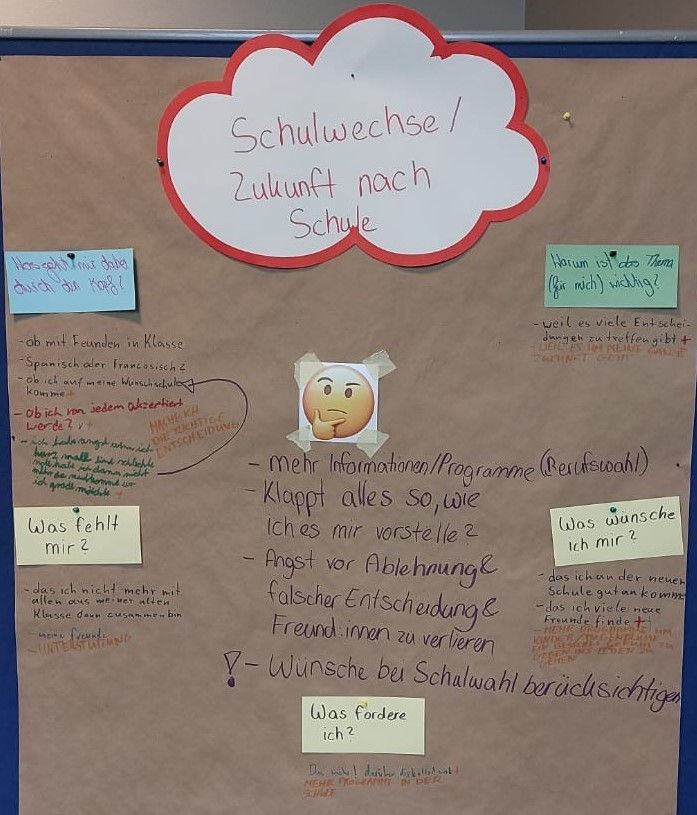 Schulwechse/
Zukunft nach
Schule
Was geht mir dabei
durch den Kopf?
- ob mit Feunden in Klasse
- Spanisch oder Francösisch?
- ob ich auf meine Wunschschule
komme +
- Ob ich von jedem akzeptiert
werde? +
MACHE ICH
DIE RICHTIGE
ENTSCHEIDUNG
- ich habe angst wenn ich
Warum ist das Thema
(für mich) wichtig?
- weil es viele Entschei-
dungen zu treffen gibt +
- WEIL ES UM MEINE GANZE
ZUKUNFT GEHT
- mehr Informationen/Programme (Berufswahl)
- Klappt alles so, wie
ich es mir vorstelle?
- Angst vor Ablehnung &
falscher Entscheidung &
Freund:innen zu verlieren
! - Wünsche bei Schulwahl berücksichtigen
Was fehlt
mir?
- das ich nicht mehr mit
allen aus meiner alten
Klasse dann zusammen bin
- meine freunde
- UNTERSTÜTZUNG
Was wünsche
ich mir?
- das ich an der neuen
Schule gut ankomme
- das ich viele neue
Freunde finde +
Was fordere
ich?
MEHR PROGRAMME IN DER
SCHULE